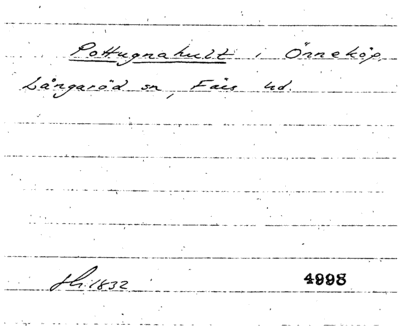 Pottugnahult i Önneköp,
Långaröd sn, Färs hd.
1832 4998